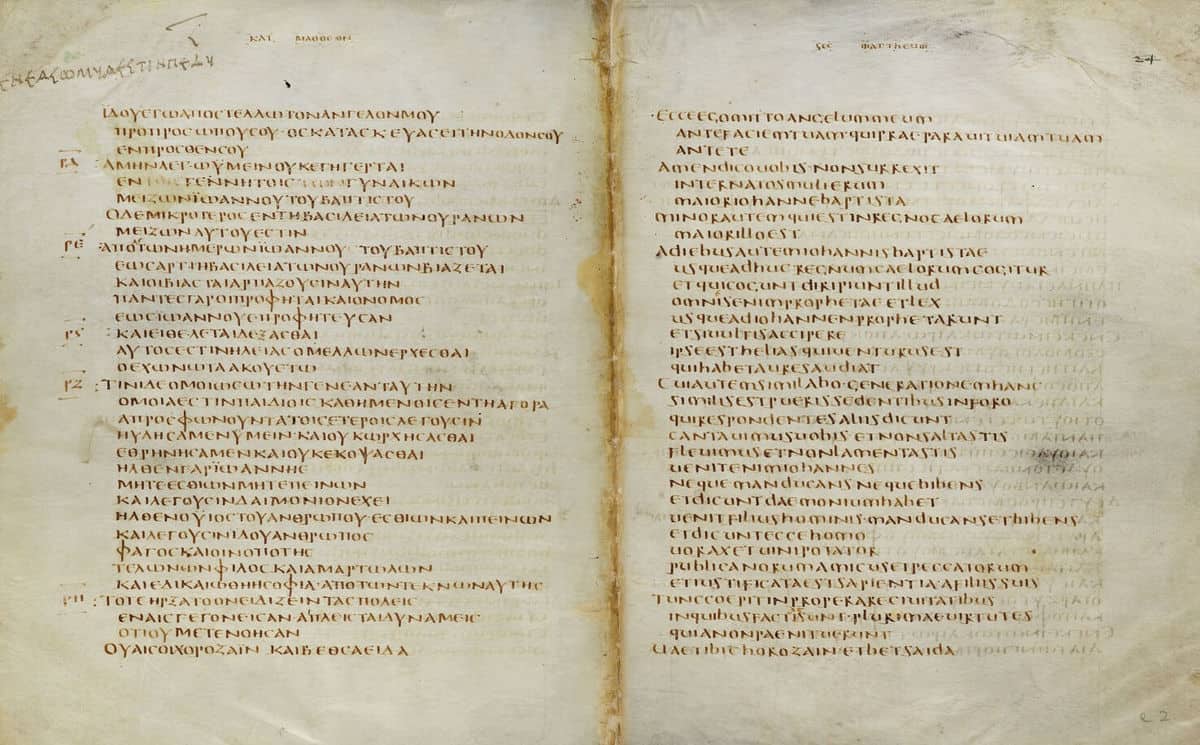 ΚΑΤ ΜΑΘΘΕΟΝ
ΙΔΟΥΕΓΩΑΠΟΣΤΕΛΛΩΤΟΝΑΝΓΕΛΟΝΜΟΥ
ΠΡΟΠΡΟΣΩΠΟΥΣΟΥ·ΟΣΚΑΤΑΣΚΕΥΑΣΕΙΤΗΝΟΔΟΝΣΟΥ
ΕΝΠΡΟΣΘΕΝΣΟΥ
ΡΔ ΑΜΗΝΛΕΓΩΫΜΕΙΝΟΥΚΕΓΗΓΕΡΤΑΙ
ΕΝ ΓΕΝΝΗΤΟΙΣ ΓΥΝΑΙΚΩΝ
ΜΕΙΖΩΝΪΩΑΝΝΟΥΤΟΥΒΑΠΤΙΣΤΟΥ
ΟΔΕΜΙΚΡΟΤΕΡΟΣΕΝΤΗΒΑΣΙΛΕΙΑΤΩΝΟΥΡΑΝΩΝ
ΜΕΙΖΩΝΑΥΤΟΥΕΣΤΙΝ
ΡΕ ΑΠΟΤΩΝΗΜΕΡΩΝΪΩΑΝΝΟΥ ΤΟΥΒΑΠΤΙΣΤΟΥ
ΕΩΣΑΡΤΙΗΒΑΣΙΛΕΙΑΤΩΝΟΥΡΑΝΩΝΒΙΑΖΕΤΑΙ
ΚΑΙΟΙΒΙΑΣΤΑΙΑΡΠΑΖΟΥΣΙΝΑΥΤΗΝ
ΠΑΝΤΕΣΓΑΡΟΙΠΡΟΦΗΤΑΙΚΑΙΟΝΟΜΟΣ
ΕΩΣΪΩΑΝΝΟΥΕΠΡΟΦΗΤΕΥΣΑΝ
ΡϚ ΚΑΙΕΙΘΕΛΕΤΑΙΔΕΞΑΣΘΑΙ
ΑΥΤΟΣΕΣΤΙΝΗΛΕΙΑΣΟΜΕΛΛΩΝΕΡΧΕΣΘΑΙ
ΟΕΧΩΝΩΤΑΑΚΟΥΕΤΩ
ΡΖ ΤΙΝΙΔΕΟΜΟΙΩΣΩΤΗΝΓΕΝΕΑΝΤΑΥΤΗΝ
ΟΜΟΙΑΕΣΤΙΝΠΑΙΔΙΟΙΣΚΑΘΗΜΕΝΟΙΣΕΝΤΗΑΓΟΡΑ
ΑΠΡΟΣΦΩΝΟΥΝΤΑΤΟΙΣΕΤΕΡΟΙΣΛΕΓΟΥΣΙΝ
ΗΥΛΗΣΑΜΕΝΥΜΕΙΝΚΑΙΟΥΚΩΡΧΗΣΑΣΘΑΙ
ΕΘΡΗΝΗΣΑΜΕΝΚΑΙΟΥΚΕΚΟΨΑΣΘΑΙ
ΗΛΘΕΝΓΑΡΪΩΑΝΝΗΣ
ΜΗΤΕΕΣΘΙΩΝΜΗΤΕΠΕΙΝΩΝ
ΚΑΙΛΕΓΟΥΣΙΝΔΑΙΜΟΝΙΟΝΕΧΕΙ
ΗΛΘΕΝΟΫΙΟΣΤΟΥΑΝΘΡΩΠΟΥ·ΕΣΘΙΩΝΚΑΙΠΕΙΝΩΝ
ΚΑΙΛΕΓΟΥΣΙΝΙΔΟΥΑΝΘΡΩΠΟΣ
ΦΑΓΟΣΚΑΙΟΙΝΟΠΟΤΗΣ
ΤΕΛΩΝΩΝΦΙΛΟΣΚΑΙΑΜΑΡΤΩΛΩΝ
ΚΑΙΕΔΙΚΑΙΩΘΗΗΣΟΦΙΑ·ΑΠΟΤΩΝΤΕΚΝΩΝΑΥΤΗΣ
ΡΗ ΤΟΤΕΗΡΞΑΤΟΟΝΕΙΔΙΖΕΙΝΤΑΣΠΟΛΕΙΣ
ΕΝΑΙΣΓΕΓΟΝΕΙΣΑΝ·ΑΙΠΛΕΙΣΤΑΙΔΥΝΑΜΕΙΣ
ΟΤΙΟΥΜΕΤΕΝΟΗΣΑΝ
ΟΥΑΙΣΟΙΧΟΡΟΖΑΪΝ ΚΑΙΒΕΘΣΑΕΙΔΑ
SEC MATTHEUM
24
ECCEEGOMITTOANGELUMMEUM
ANTEFACIEMTUAMQUIPRAEPARAUITUIAMTUAM
ANTETE
AMENDICOUOBISNONSURREXIT
INTERNATOSMULIERUM
MAIORIOHANNEBAPTISTA
MINORAUTEMQUIESTINREGNOCAELORUM
MAIORILLOEST
ADIEBUSAUTEMIOHANNISBAPTISTAE
USQUEADHUCREGNUMCAELORUMCOGITUR
ETQUICOGUNTDIRIPIUNTILLUD
OMNISENIMPROPHETAEETLEX
USQUEADIOHANNENPROPHETARUNT
ETSIUULTISACCIPERE
IPSEESTHELIASQUIUENTURUSEST
QUIHABETAURESAUDIAT
CUIAUTEMSIMILABO·GENERATIONEMHANC
SIMILISESTPUERISSEDENTIBUSINFORO
QUIRESPONDENTESALIISDICUNT
CANTAUIMUSUOBISETNONSALTASTIS
FLEUIMUSETNONLAMENTASTIS
UENITENIMIOHANNES
NEQUEMANDUCANSNEQUEBIBENS
ETDICUNTDAEMONIUMHABET
UENITFILIUSHOMINIS·MANDUCANSETBIBENS
ETDICUNTECCEHOMO
UORAXETUINIPOTATOR
PUBLICANORUMAMICUSETPECCATORUM
ETIUSTIFICATAESTSAPIENTIAAFILIISSUIS
TUNCCOEPITINPROPERARECIUITATIBUS
INQUIBUSFACTISUNT·PLURIMAEUIRTUTES
QUIANONPAENITUERUNT
UAETIBICHOROZAINETBETSAIDA
e 2